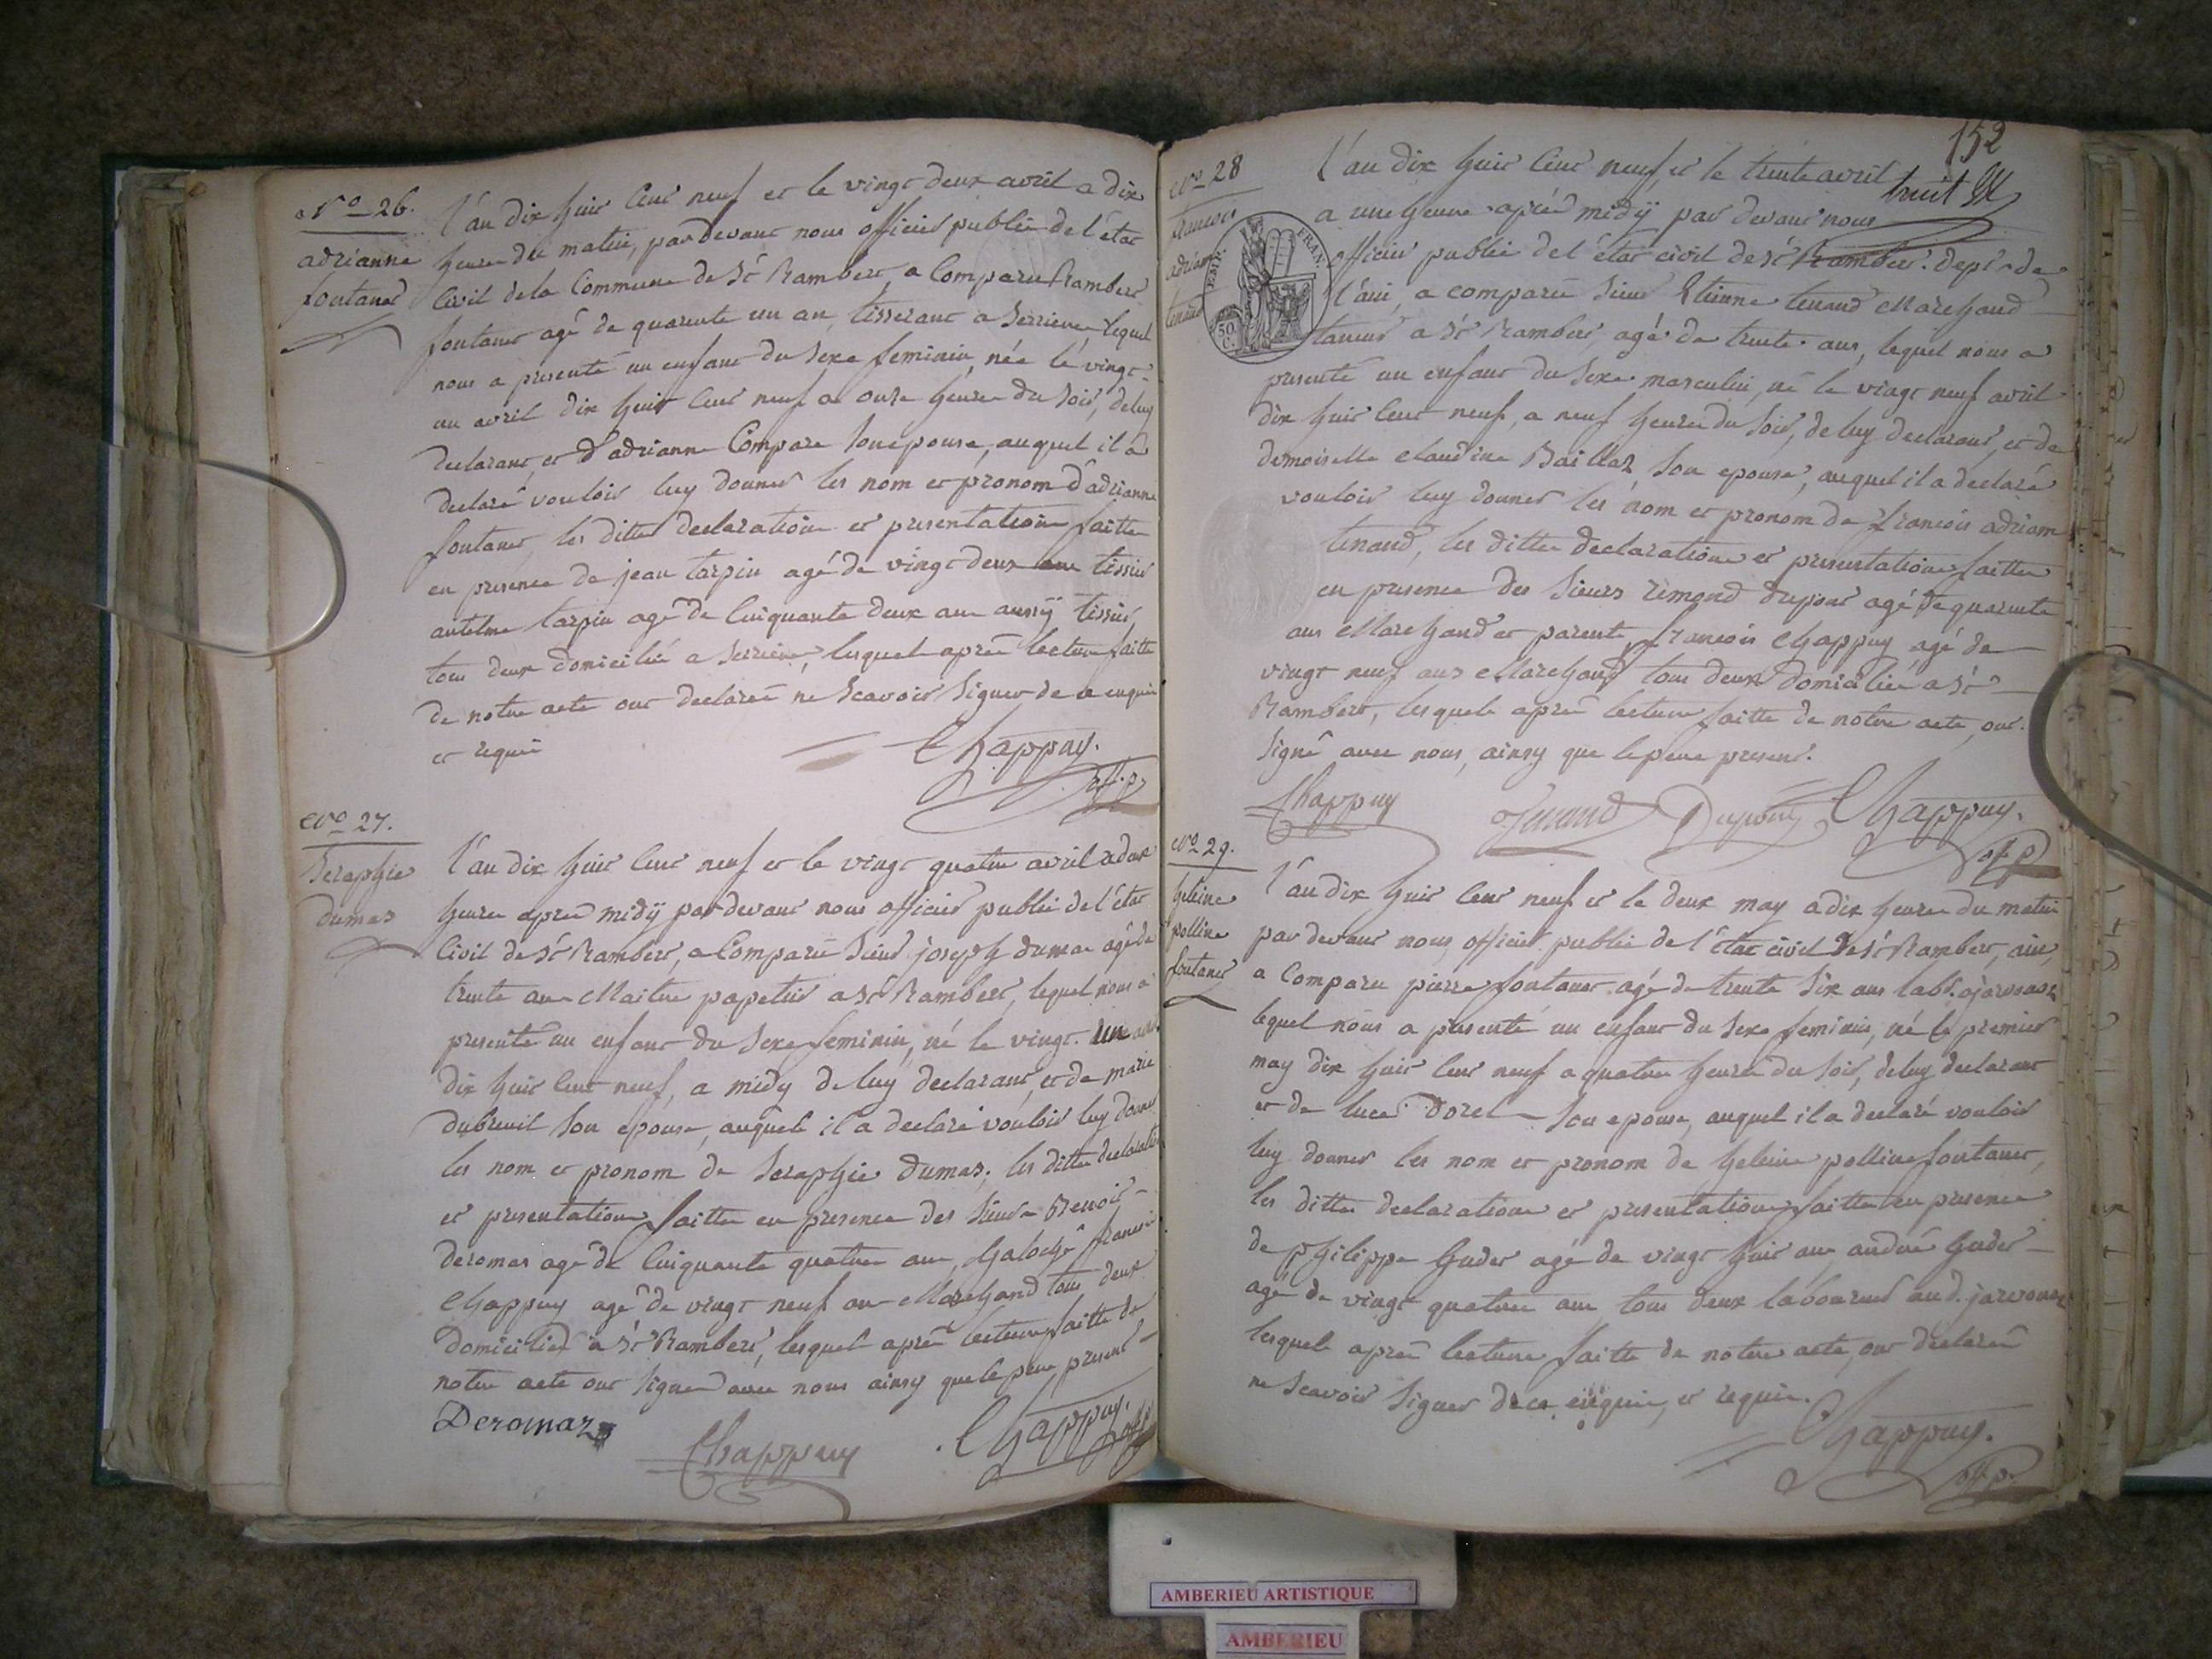 N.o 26.
adrianne
fontanet
L'an dix huit cent neuf et le vingt deux avril a dix
heures du matin, par devant nous officier public de l'état
Civil de la Commune de St Rambert a Comparu Rambert
fontanet agé de quarante un an, tisserant a Serriere lequel
nous a presenté un enfant du Sexe feminin, née le vingt
un avril dix huit cent neuf a onze heures du Soir, de luy
declarant, et d'adrianne Compare Son epouse, auquel il a
declaré vouloir luy donner les nom et pronom d'adrianne
fontanet, les dittes declaration et presentation faittes
en presence de jean tarpin agé de vingt deux ans tissier
antelme tarpin agé de Cinquante deux ans aussÿ tissier,
tous deux domiciliés a Serriere, lesquels après lecture faitte
de notre acte ont declarés ne Scavoir Signer de ce enquis
et requis
Chappuy.
off. p.
N.o 27.
Seraphie
dumas
L'an dix huit cent neuf et le vingt quatre avril a deux
heures après midÿ par devant nous officier public de l'état
Civil de St Rambert, a Comparu Sieur joseph dumas agé de
trente ans Maitre papetier a St Rambert, lequel nous a
presenté un enfant du Sexe feminin, né le vingt un avril
dix huit cent neuf, a midy de luy declarant, et de marie
dubreuil Son epouse, auquels il a declaré vouloir luy donner
les nom et pronom de Seraphie dumas; les dittes declaration
et presentation faittes en presence des Sieurs Benoit
deromas agé de Cinquante quatre ans, Galoché francois
Chappuy agé de vingt neuf ans Marchand tous deux
domiciliés a St Rambert, lesquels après lecture faitte de
notre acte ont Signés avec nous ainsy que le pere present
Deromaz
Chappuy
Chappuy. off p
152
N.o 28
francois
adriam
tenand
EMP. FRAN.
50 C.
L'an dix huit cent neuf, et le trente avril
a une heure après midÿ par devant nous
officier public de l'état civil de St Rambert. dept de
l'ain, a comparu Sieur Etienne tenand Marchand
taneur a St Rambert, agé de trente ans, lequel nous a
presenté un enfant du Sexe masculin, né le vingt neuf avril
dix huit cent neuf, a neuf heures du Soir, de luy declarant, et de
demoiselle claudine Baillat Son epouse, auquel il a declaré
vouloir luy donner les nom et pronom de francois adriam
tenand, les dittes declaration et presentation faittes
en presence des Sieurs rémond dupont agé de quarante
ans Marchand et parente, francois Chappuy agé de
vingt neuf ans Marchand tous deux domiciliés a St
Rambert, lesquels après lecture faitte de notre acte, ont
Signé avec nous, ainsy que le pere present.
Chappuy Tenand Dupont Chappuy.
off p
N.o 29.
heleine
polline
fontanet
L'an dix huit cent neuf et le deux may a dix heures du matin
par devant nous officier public de l'état civil de St Rambert, ain,
a Comparu pierre fontanet agé de trente Six ans
lequel nous a presenté un enfant du Sexe feminin, né le premier
may dix huit cent neuf a quatre heures du Soir, de luy declarant
et de luce dorel Son epouse, auquel il a declaré vouloir
luy donner les nom et pronom de heleine polline fontanet,
les dittes declaration et presentation faittes en presence
de philippe huder agé de vingt huit ans, andré huder
agé de vingt quatre ans tous deux laboureur aud. jarvonoz
lesquels après lecture faitte de notre acte, ont declarés
ne Scavoir Signer de ce enquis, et requis.
Chappuy.
off. p.
AMBERIEU ARTISTIQUE
AMBERIEU